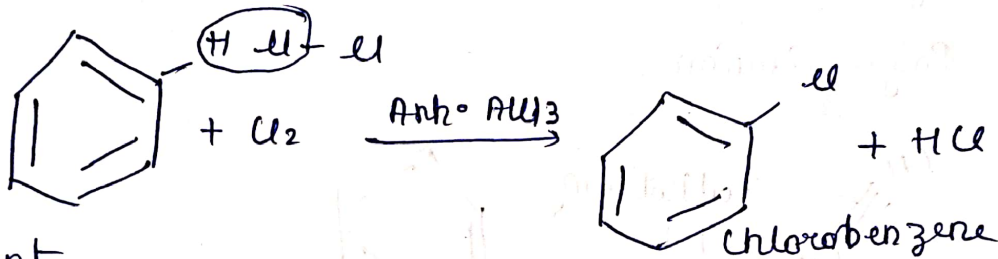 H Cl - Cl
+ Cl2 Anh. AlCl3 Cl + HCl
Chlorobenzene
nt